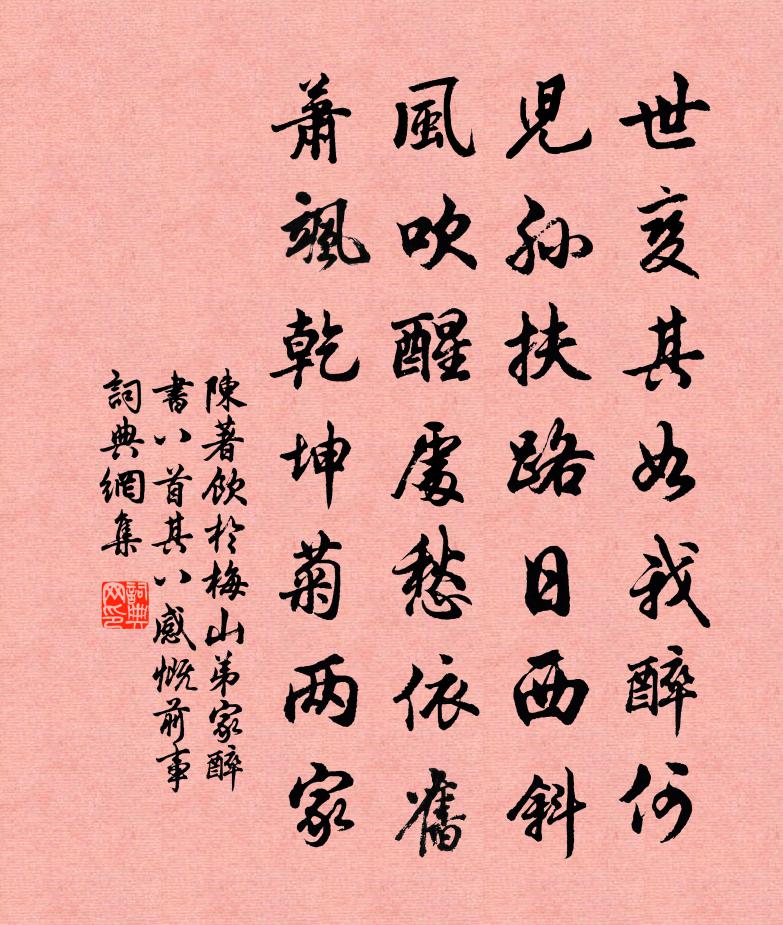 世变其如我醉何
児孙扶路日西斜
風吹醒處愁依舊
蕭颯乾坤菊两家
陳著飲於梅山弟家醉
書八首其八感慨前事
詞典網集
詞典网印